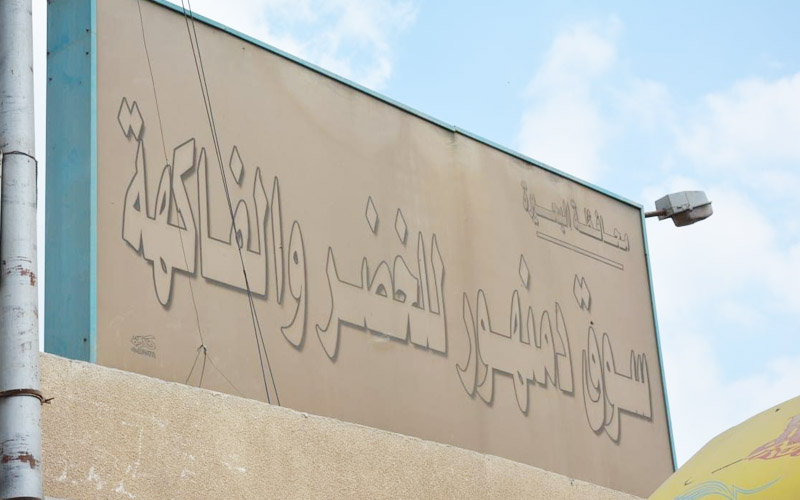 محافظة البحيرة
سوق دمنهور للخضر والفاكهة